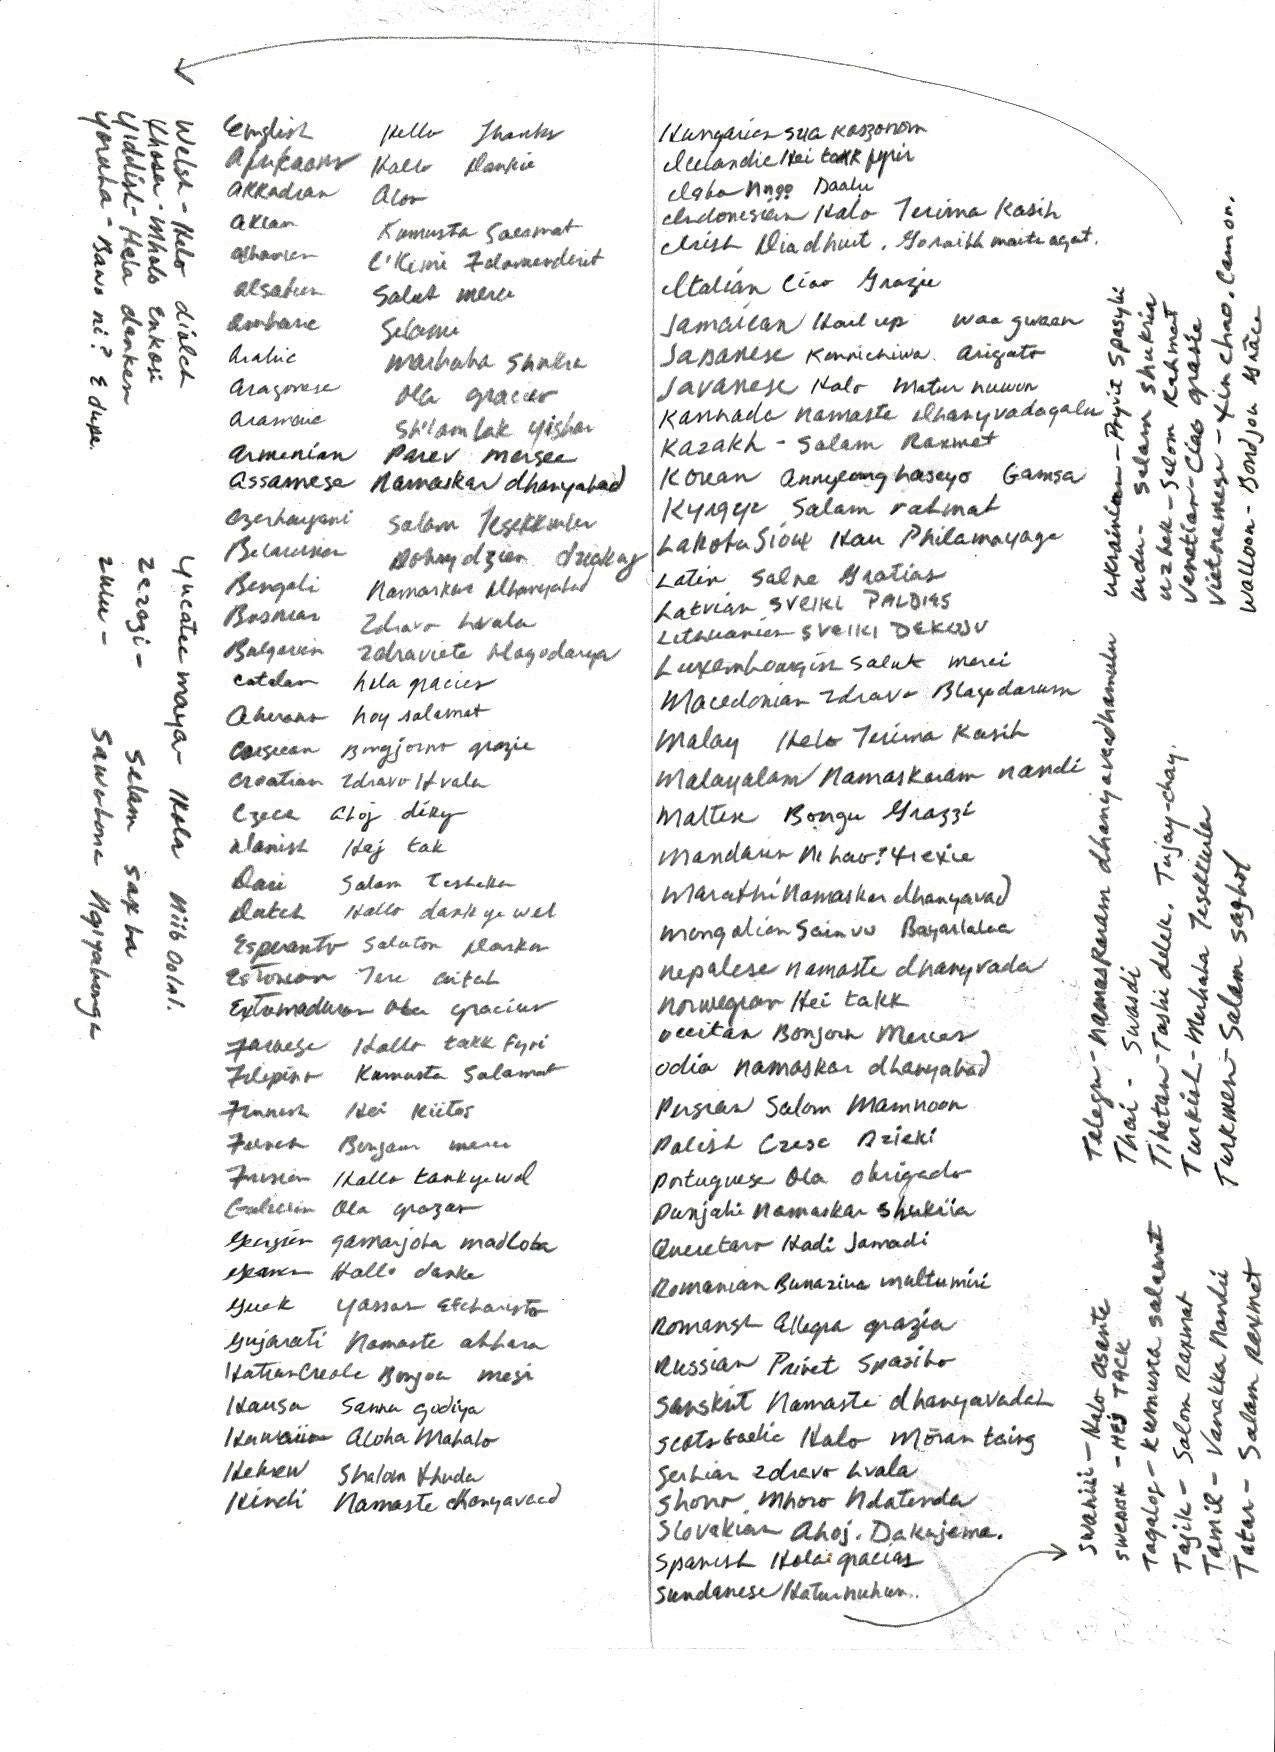 English Hello Thanks
Afrikaans Hallo Dankie
Akkadian
Aklan Kumusta Salamat
Albanian
Alsatian Salut merci
Selam
Arabic marhaba Shukra
Aragonese Ola gracias
Aramaic Sh'lamlak yishar
Armenian Parev mersee
Assamese Namaskar dhanyabad
Azerbayani Salam Tesekkurler
Belarusian
Bengali Namaskar dhanyabad
Bosnian Zdravo hvala
Bulgarian Zdraviete blagodarya
Catalan hola gracies
hoy salamat
Corsican Bongjorno grazie
Croatian Zdravo Hvala
Czech Ahoj diky
Danish Hej tak
Dari Salam Teshekur
Dutch Hallo dank ye wel
Esperanto Saluton Dankon
Estonian Tere aitah
Extramaduran Ola gracias
Faroese Hallo takk fyri
Filipino Kumusta Salamat
Finnish Hei Kiitos
French Bonjour merci
Frisian Hallo tankyewol
Galician Ola grazas
Georgian gamarjoba madloba
German Hallo danke
Greek Yassas Efcharisto
Gujarati Namaste abhara
Hatian Creole Bonjou mesi
Hausa Sannu godiya
Hawaiian Aloha Mahalo
Hebrew Shalom thuda
Hindi Namaste dhanyavaad
Hungarian szia Koszonom
Icelandic Hei takk fyrir
Igbo Ngo Daalu
Indonesian Halo Terima Kasih
Irish Dia dhuit. Goraibh maith agat.
Italian Ciao Grazie
Jamaican Hail up waa gwaan
Japanese Konnichiwa arigato
Javanese Halo matur nuwun
Kannada namaste dhanyvadagalu
Kazakh - Salam Raxmet
Korean Annyeong haseyo Gamsa
Kyrgyz Salam rahmat
Lakota Sioux Hau Philamayaye
Latin Salve Gratias
Latvian SVEIKI PALDIES
Lithuanian SVEIKI DEKOJU
Luxembourgish Salut merci
Macedonian Zdravo Blagodarum
Malay Helo Terima Kasih
Malayalam Namaskaram nandi
Maltese Bongu Grazzi
Mandarin Ni hao! Xiexie
Marathi Namaskar dhanyavad
Mongolian Sainuu Bayarlalaa
Nepalese Namaste dhanyvada
Norwegian Hei takk
Occitan Bonjorn Merces
Odia Namaskar dhanyabad
Persian Salom Mamnoon
Polish Czesc Dzieki
Portuguese Ola obrigado
Punjabi Namaskar Shukriia
Queretaro Hadi Jamadi
Romanian Bunaziua multumiri
Romansh Allegra grazia
Russian Privet Spasibo
Sanskrit Namaste dhanyavadah
Scots Gaelic Halo Mōran taing
Serbian Zdravo hvala
Shona Mhoro Ndatenda
Slovakian Ahoj. Dakujeme.
Spanish Hola gracias
Sundanese Haturnuhun..
Swahili - Halo asante
Swedish - HEJ TACK
Tagalog - Kumusta salamat
Tajik - Salom Raxmat
Tamil - Vanakka Nandii
Tatar - Salam Rexmet
Telegu - namaskaram dhanyavaadhamulu
Thai - Swasdi
Tibetan - Tashi delek. Tujay-chay.
Turkish - Merhaba Tesekkurler
Turkmen - Salam sagbol
Ukrainian - Pryit Spasybi
Urdu - Salam shukria
Uzbek - Salom Rahmat
Venetian - Ciao grasie
Vietnamese - Xin chao. Cam on.
Walloon - Bondjou
Welsh - Helo diolch
Xhosa - Mholo Enkosi
Yiddish - Hela danken
Yoruba - Bawo ni? E dupe.
Yucatec maya - Hola Niib Oolal.
Zazagi - Selam sax ba
Zulu - Sawubona Ngiyabonga